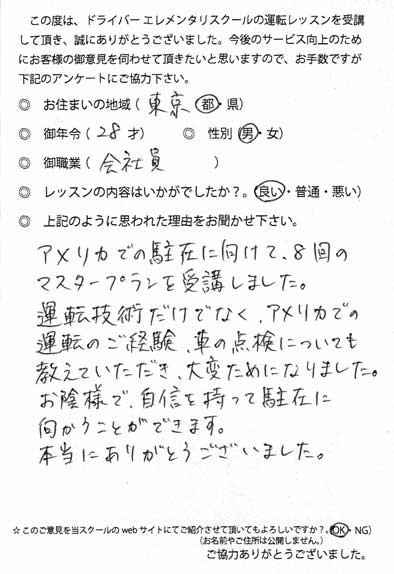 この度は、ドライバーエレメンタリスクールの運転レッスンを受講
して頂き、誠にありがとうございました。今後のサービス向上のため
にお客様の御意見を伺わせて頂きたいと思いますので、お手数ですが
下記のアンケートにご協力下さい。
◎ お住まいの地域( 東京 都・県)
◎ 御年令( 28 才) ◎ 性別( 男・女)
◎ 御職業( 会社員 )
◎ レッスンの内容はいかがでしたか?。(良い・普通・悪い)
◎ 上記のように思われた理由をお聞かせ下さい。
アメリカでの駐在に向けて、8回の
マスタープランを受講しました。
運転技術だけでなく、アメリカでの
運転のご経験、車の点検についても
教えていただき、大変ためになりました。
お陰様で、自信を持って駐在に
向かうことができます。
本当にありがとうございました。
☆このご意見を当スクールの web サイトにてご紹介させて頂いてもよろしいですか?。(OK・NG)
(お名前やご住所は公開しません。)
ご協力ありがとうございました。